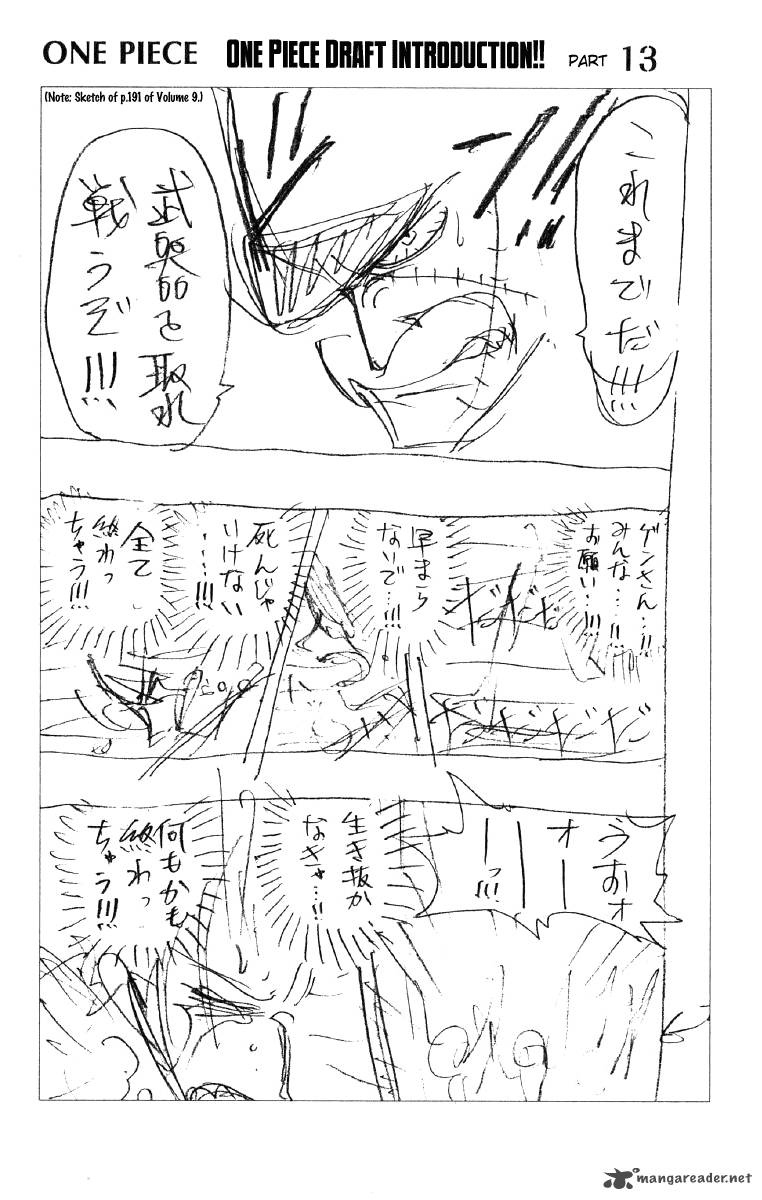 ONE PIECE ONE PIECE DRAFT INTRODUCTION!! PART 13
(Note: Sketch of p.191 of Volume 9.)
これまでだ!!!
武器を取れ
戦うぞ!!!
ゲンさん…!!
みんな…!!
お願い…!!!
早まら
ないで…!!!
死んじゃ
いけない
…!!!
全て
終わっ
ちゃう!!!
うおォ
オーー
ーーっ!!!
生き抜か
なきゃ…!!
何もかも
終わっ
ちゃう!!!
mangareader.net